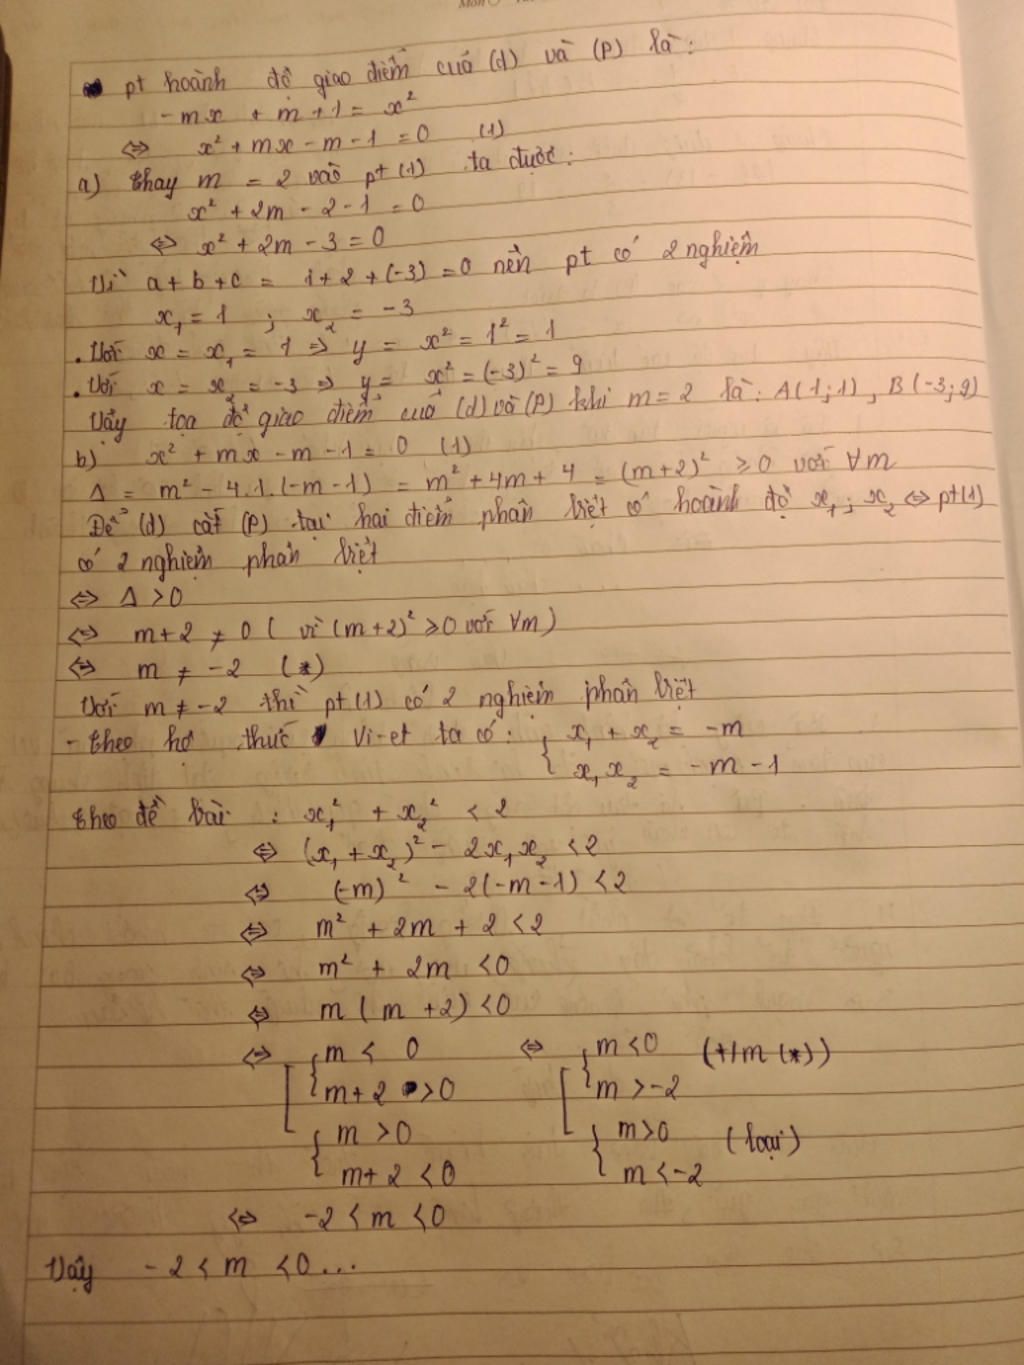 Môn
pt hoành độ giao điểm của (d) và (P) là:
-mx + m + 1 = x²
⇔ x² + mx - m - 1 = 0 (1)
a) thay m = 2 vào pt (1) ta được:
x² + 2m - 2 - 1 = 0
⇔ x² + 2m - 3 = 0
Vì a + b + c = 1 + 2 + (-3) = 0 nên pt có 2 nghiệm
x₁ = 1 ; x₂ = -3
. Với x = x₁ = 1 ⇒ y = x² = 1² = 1
. Với x = x₂ = -3 ⇒ y = x² = (-3)² = 9
Vậy tọa độ giao điểm của (d) và (P) khi m = 2 là: A(1;1), B(-3;9)
b) x² + mx - m - 1 = 0 (1)
Δ = m² - 4.1.(-m - 1) = m² + 4m + 4 = (m+2)² ≥ 0 với ∀m
Để (d) cắt (P) tại hai điểm phân biệt có hoành độ x₁; x₂ ⇔ pt(1)
có 2 nghiệm phân biệt
⇔ Δ > 0
⇔ m + 2 ≠ 0 ( vì (m+2)² ≥ 0 với ∀m)
⇔ m ≠ -2 (*)
Với m ≠ -2 thì pt (1) có 2 nghiệm phân biệt
- theo hệ thức Vi-et ta có: { x₁ + x₂ = -m
x₁x₂ = -m - 1
theo đề bài : x₁² + x₂² < 2
⇔ (x₁ + x₂)² - 2x₁x₂ < 2
⇔ (-m)² - 2(-m - 1) < 2
⇔ m² + 2m + 2 < 2
⇔ m² + 2m < 0
⇔ m (m + 2) < 0
⇔ [ { m < 0 ⇔ [ { m < 0 (t/m (*))
m + 2 > 0 m > -2
{ m > 0 { m > 0 (loại)
m + 2 < 0 m < -2
⇔ -2 < m < 0
Vậy -2 < m < 0...